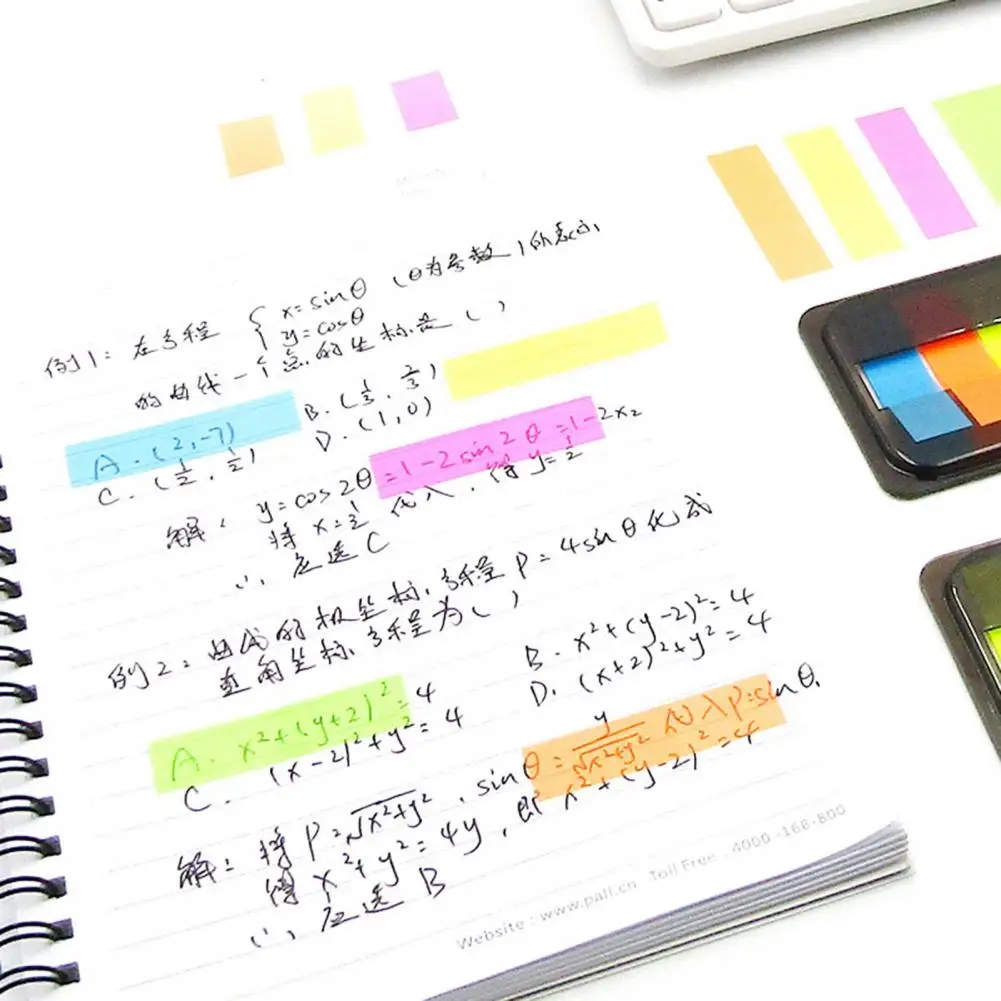 例1:在方程 { x=sinθ (θ为参数)所表示
y=cosθ
的曲线一个点的坐标是( )
A.(2,-7) B.(1/3,2/3)
C.(1/2,1/2) D.(1,0)
解: y=cos2θ=1-2sin2θ=1-2x2
将 x=1/2 代入,得 y=1/2
∴应选C
例2:曲线的极坐标方程 P=4sinθ化成
直角坐标方程为( )
A. x²+(y+2)²=4 B. x²+(y-2)²=4
C. (x-2)²+y²=4 D. (x+2)²+y²=4
解:将 P=√x²+y², sinθ=y/√x²+y² 代入P=sinθ,
得 x²+y²=4y,即 x²+(y-2)²=4
∴应选B
Website:www.pall.cn Toll Free:4000-168-800